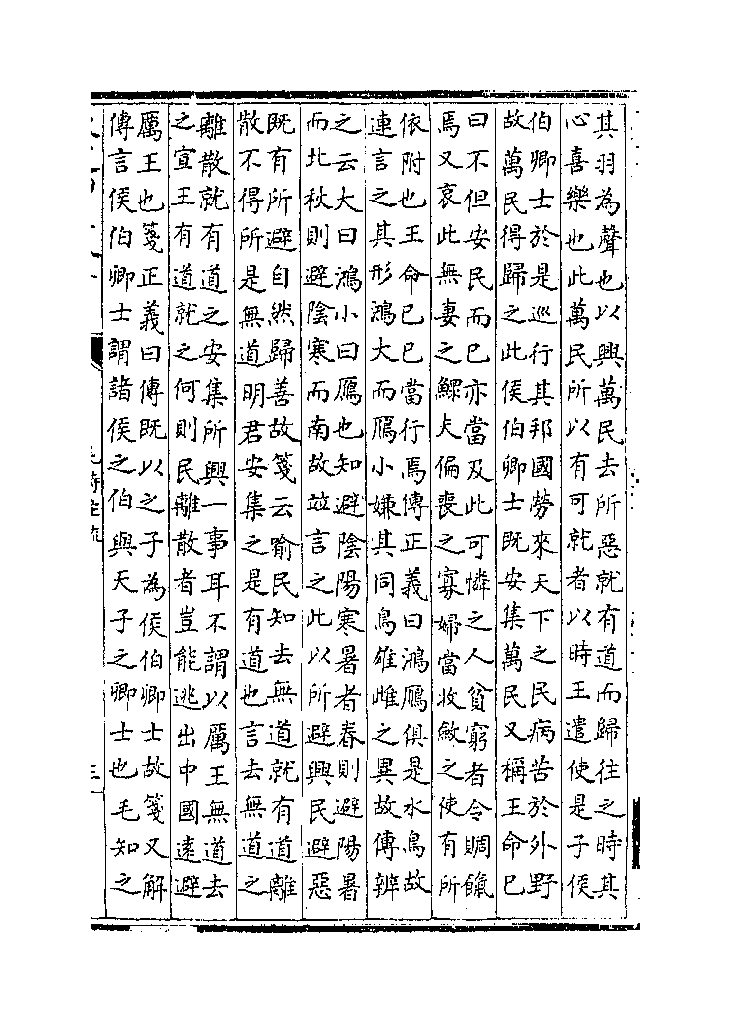 其羽為聲也以興萬民去所惡就有道而歸往之時其
心喜樂也此萬民所以有可就者以時王遣使是子侯
伯卿士於是巡行其邦國勞來天下之民病苦於外野
故萬民得歸之此侯伯卿士既安集萬民又稱王命已
曰不但安民而已亦當及此可憐之人貧窮者令賙餼
焉又哀此無妻之鰥夫偏喪之寡婦當收斂之使有所
依附也王命已已當行焉傳正義曰鴻鴈俱是水鳥故
連言之其形鴻大而鴈小嫌其同鳥雄雌之異故傳辨
之云大曰鴻小曰鴈也知避陰陽寒暑者春則避陽暑
而北秋則避陰寒而南故竝言之此以所避興民避惡
既有所避自然歸善故箋云喻民知去無道就有道離
散不得所是無道明君安集之是有道也言去無道之
離散就有道之安集所興一事耳不謂以厲王無道去
之宣王有道就之何則民離散者豈能逃出中國遠避
厲王也箋正義曰傳既以之子為侯伯卿士故箋又解
傳言侯伯卿士謂諸侯之伯與天子之卿士也毛知之
毛詩注疏